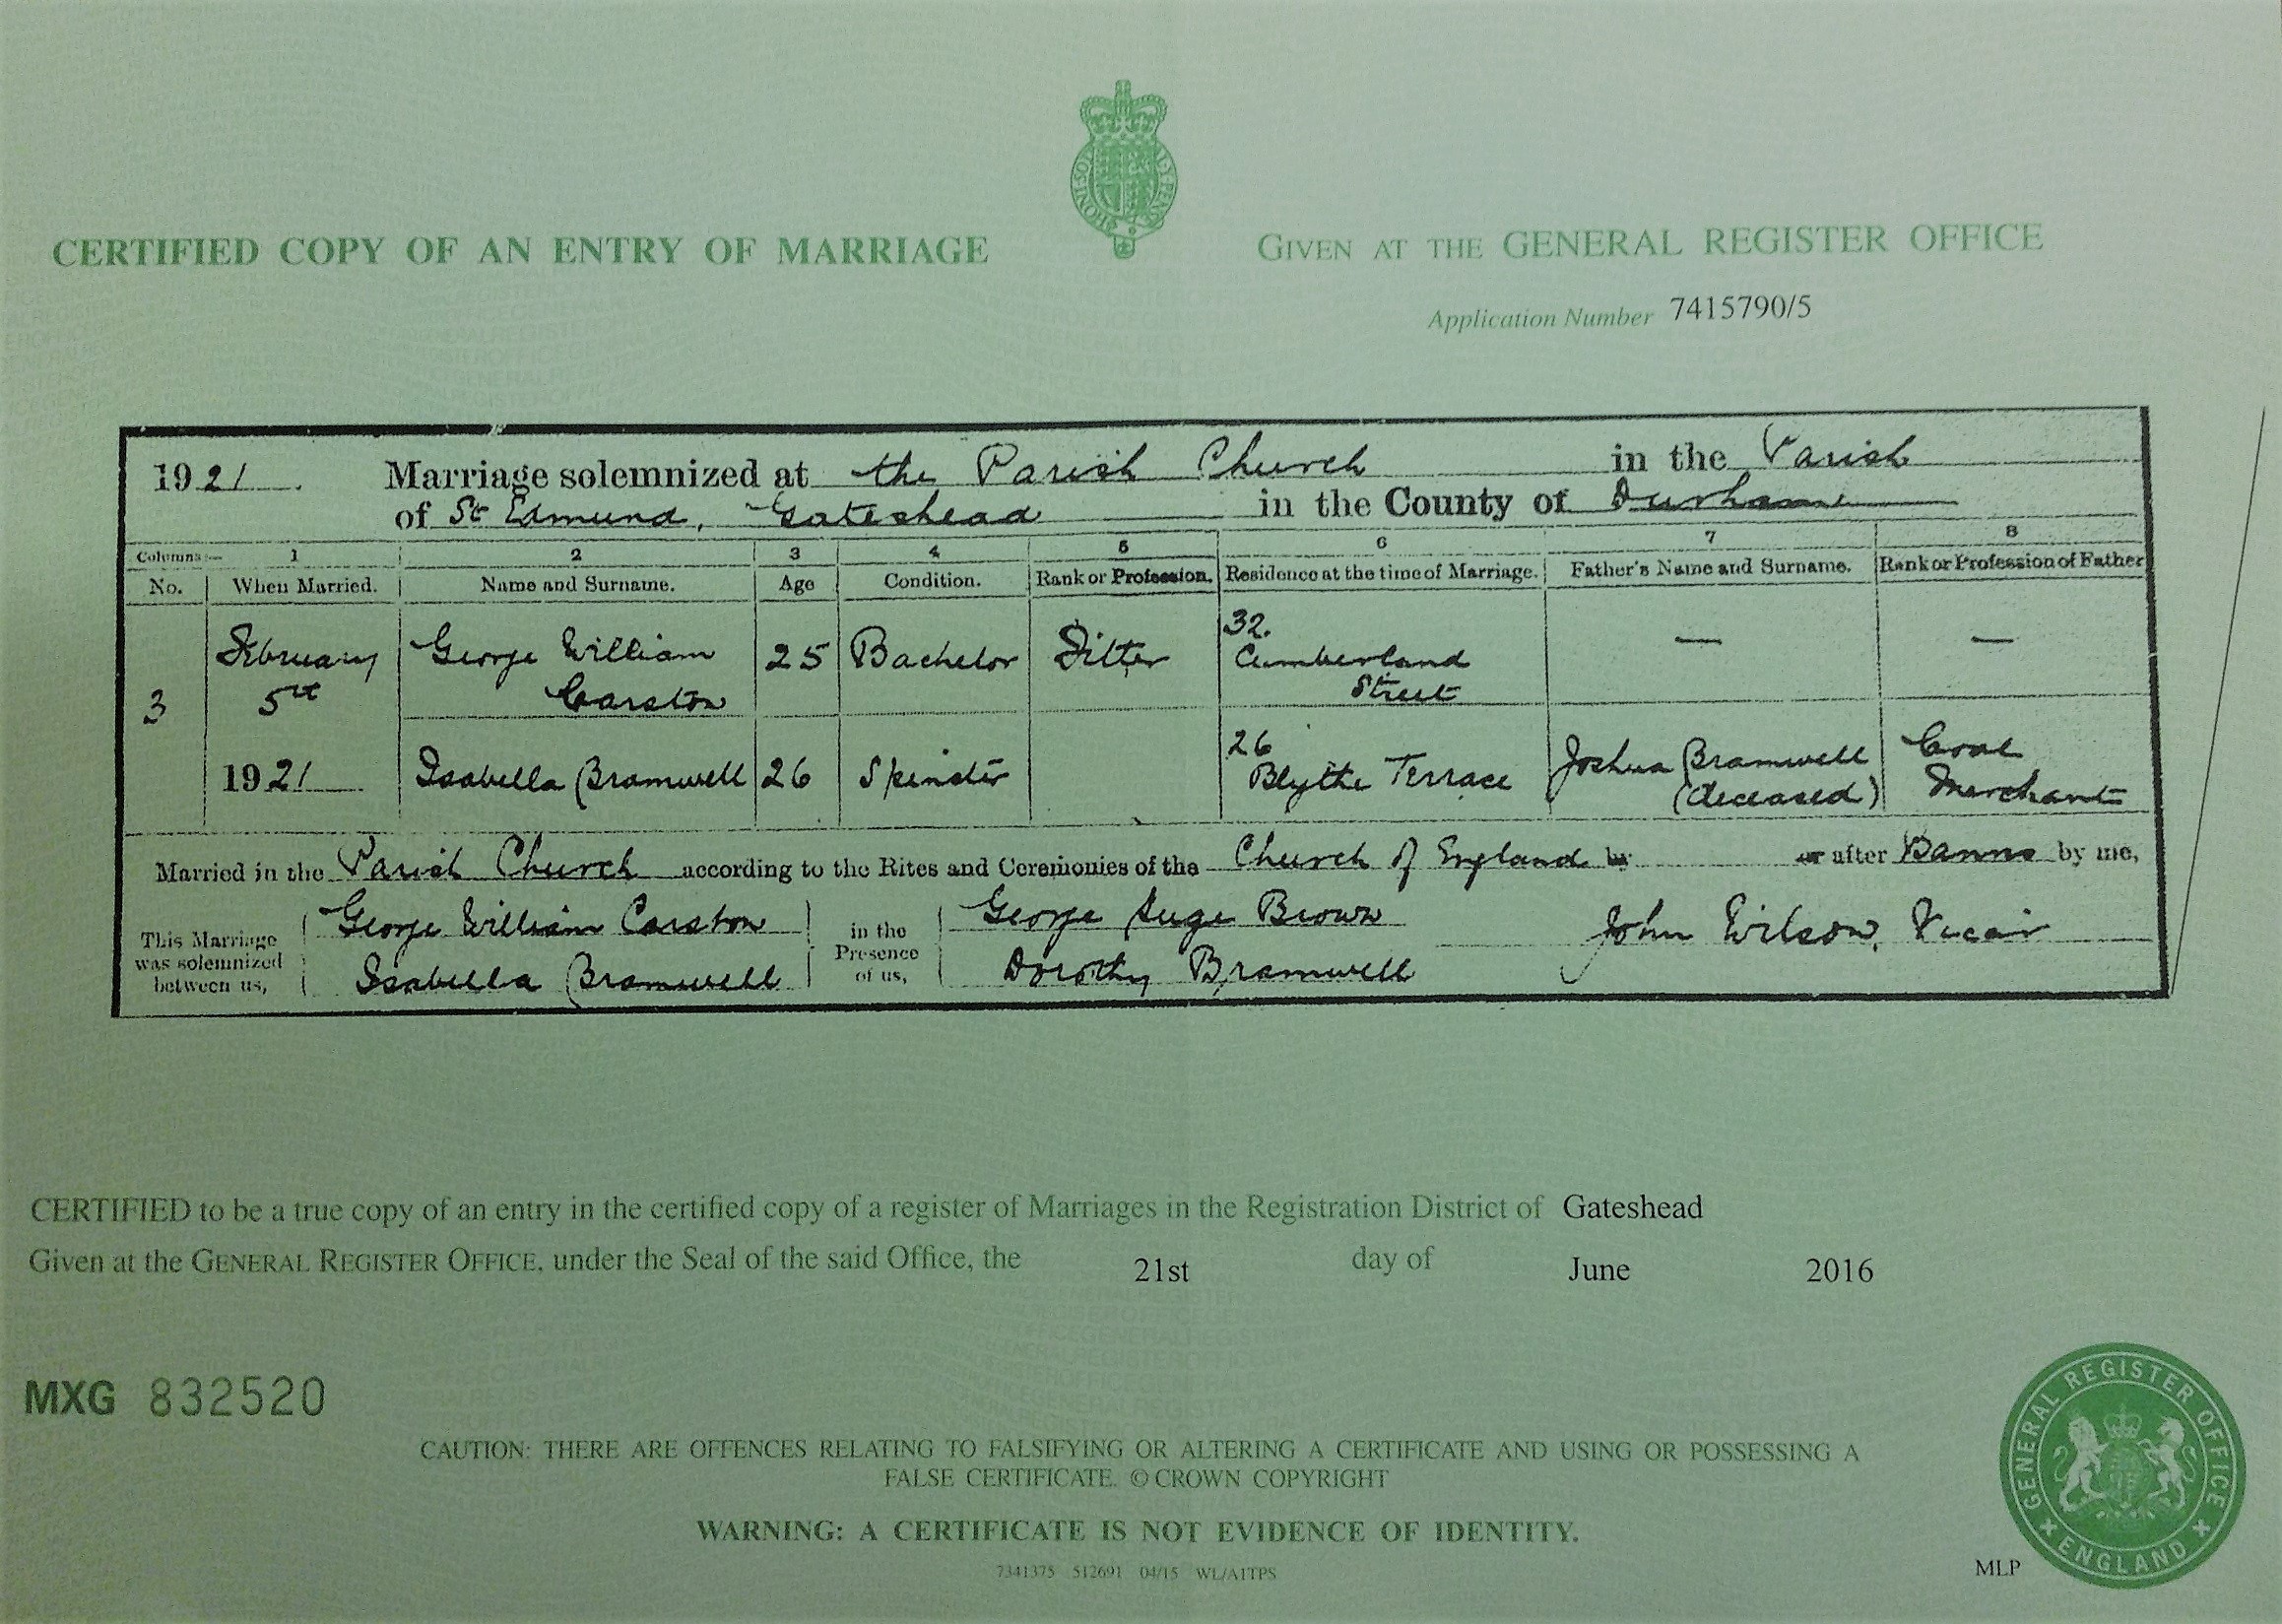 CERTIFIED COPY OF AN ENTRY OF MARRIAGE
GIVEN AT THE GENERAL REGISTER OFFICE
Application Number 7415790/5
1921. Marriage solemnized at the Parish Church in the Parish
of St Edmund, Gateshead in the County of Durham
Columns:— 1 2 3 4 5 6 7 8
No. When Married. Name and Surname. Age Condition. Rank or Profession. Residence at the time of Marriage. Father's Name and Surname. Rank or Profession of Father
3
February
5th
1921
George William
Carston
25
Bachelor
Fitter
32.
Cumberland
Street
—
—
Isabella Bramwell
26
Spinster
26
Blythe Terrace
Joshua Bramwell
(deceased)
Coal
Merchant
Married in the Parish Church according to the Rites and Ceremonies of the Church of England by or after Banns by me,
This Marriage
was solemnized
between us,
George William Carston
Isabella Bramwell
in the
Presence
of us,
George Brown
Dorothy Bramwell
John Wilson, Vicar
CERTIFIED to be a true copy of an entry in the certified copy of a register of Marriages in the Registration District of Gateshead
Given at the GENERAL REGISTER OFFICE, under the Seal of the said Office, the 21st day of June 2016
MXG 832520
CAUTION: THERE ARE OFFENCES RELATING TO FALSIFYING OR ALTERING A CERTIFICATE AND USING OR POSSESSING A
FALSE CERTIFICATE. © CROWN COPYRIGHT
WARNING: A CERTIFICATE IS NOT EVIDENCE OF IDENTITY.
7341375 512691 04/15 WL/A1TPS
MLP
GENERAL REGISTER OFFICE
ENGLAND